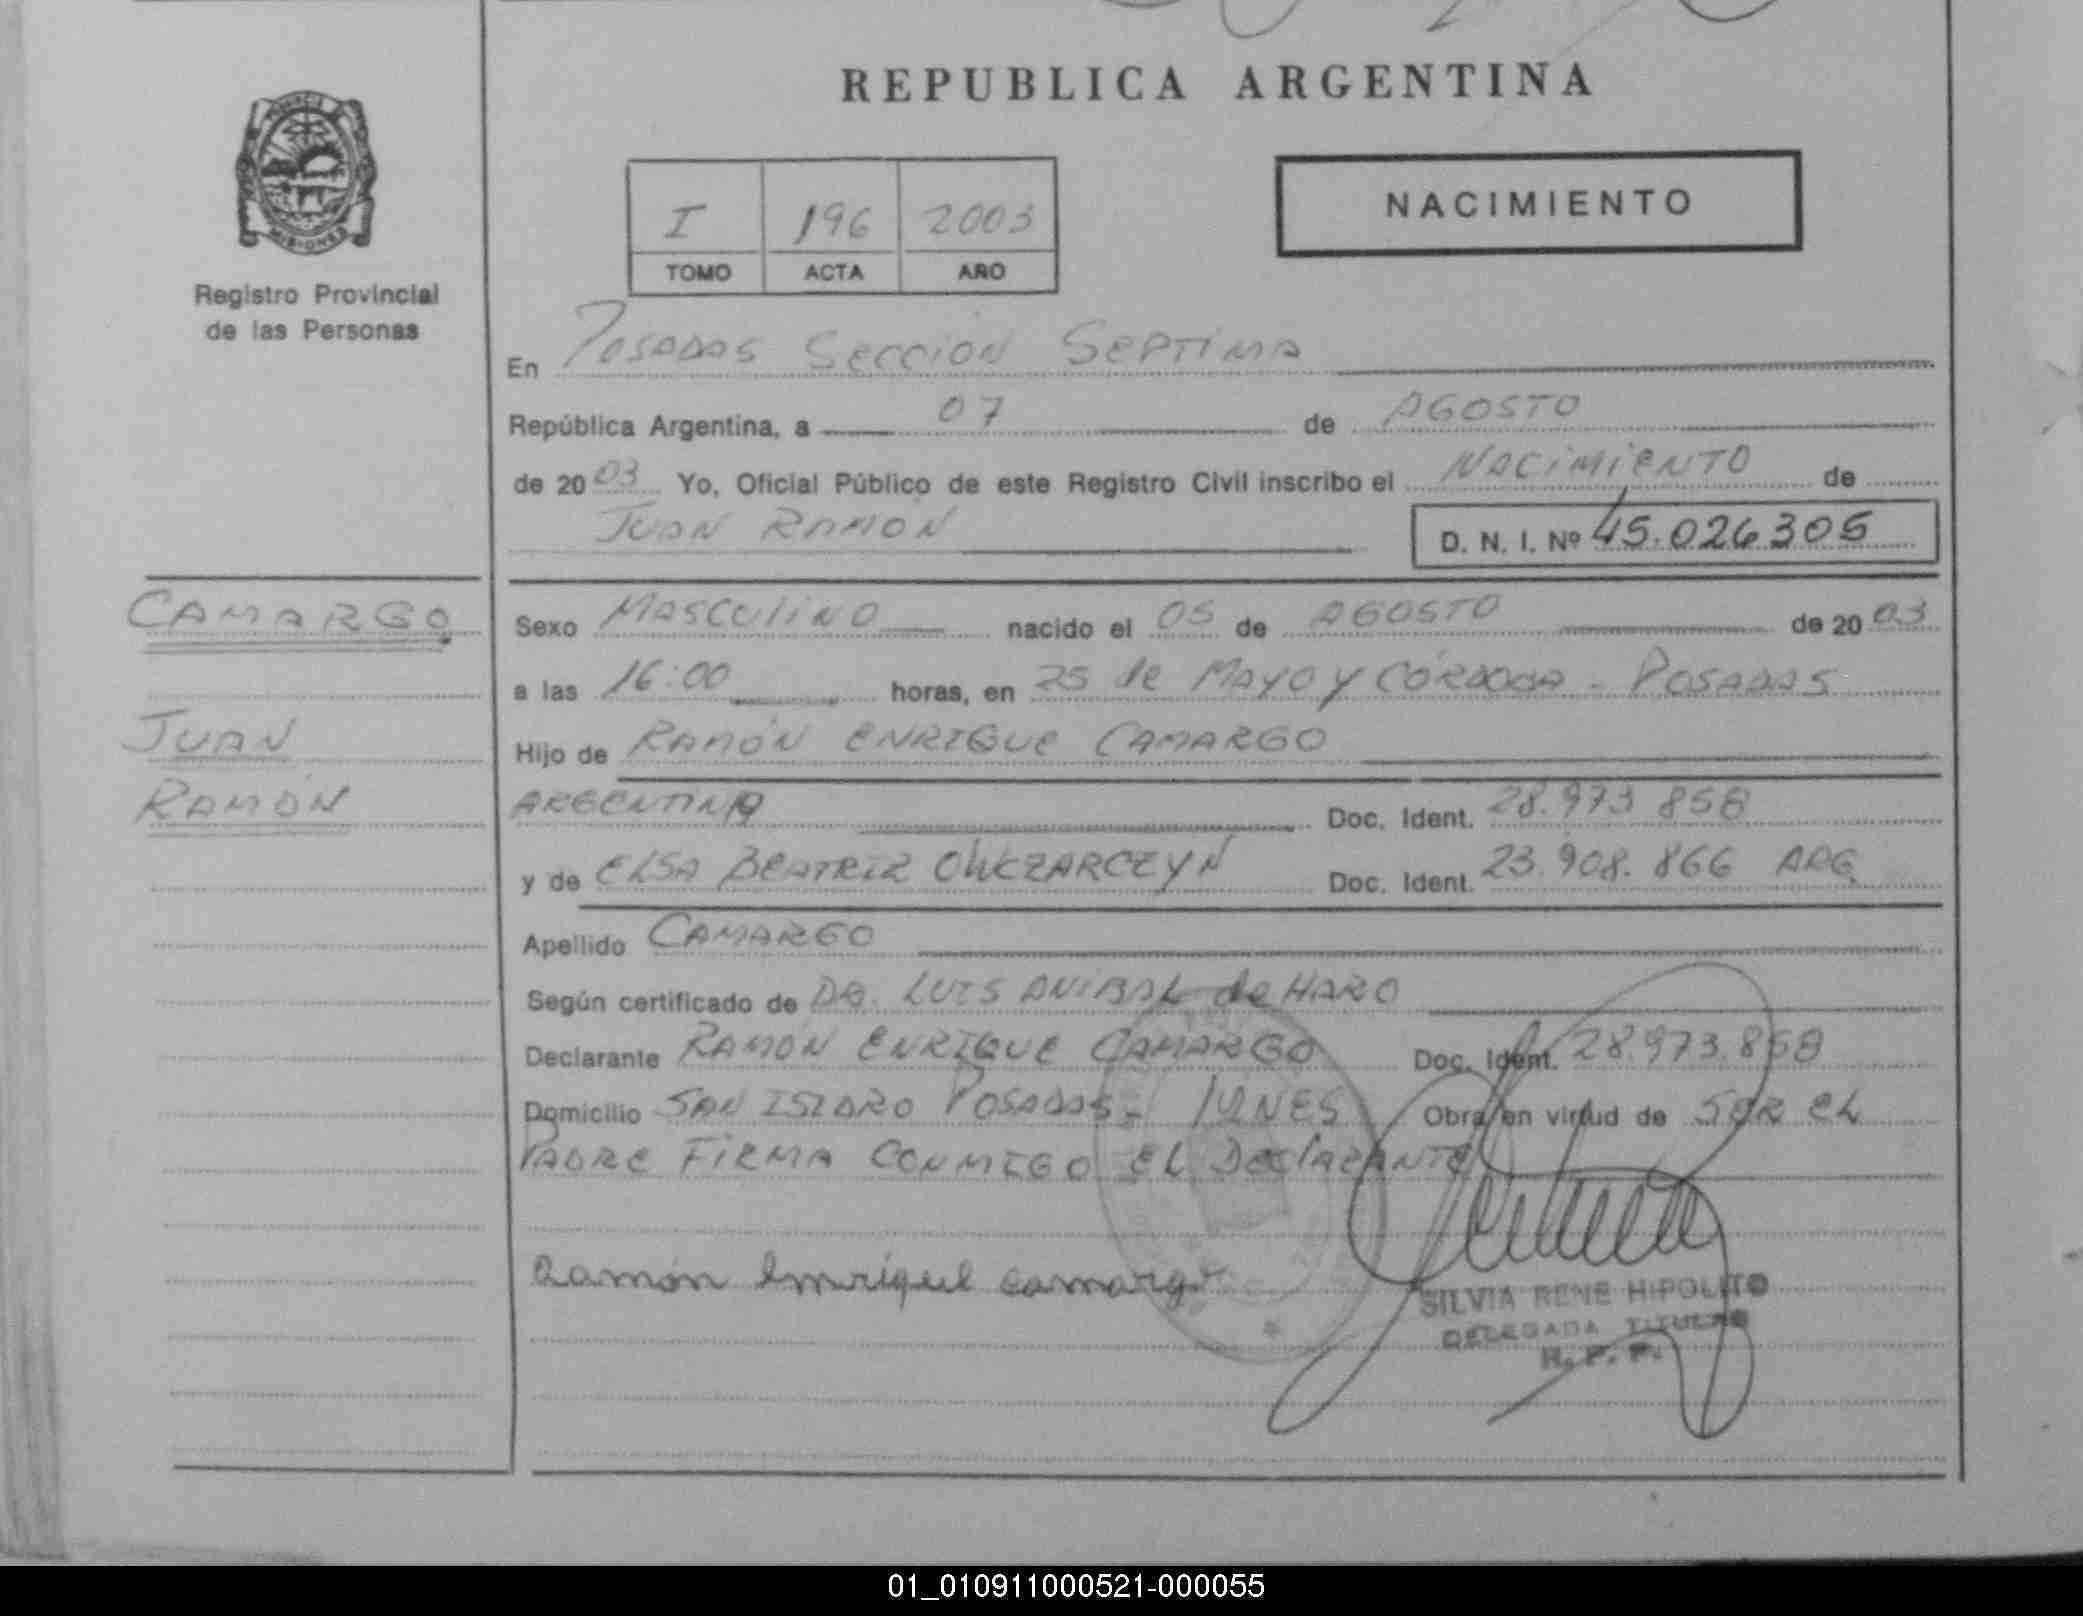 REPUBLICA ARGENTINA
PROVINCIA DE
MISIONES
Registro Provincial
de las Personas
I 196 2003
TOMO ACTA AÑO
NACIMIENTO
En POSADAS SECCION SEPTIMA
República Argentina, a 07 de AGOSTO
de 20 03 Yo, Oficial Público de este Registro Civil inscribo el NACIMIENTO de
JUAN RAMÓN
D. N. I. Nº 45.026.305
CAMARGO
JUAN
RAMÓN
Sexo MASCULINO nacido el 05 de AGOSTO de 20 03
a las 16:00 horas, en 25 de MAYO y CÓRDOBA - POSADAS
Hijo de RAMÓN ENRIQUE CAMARGO
ARGENTINO Doc. Ident. 28.973 858
y de ELSA BEATRIZ OWCZARCZYN Doc. Ident. 23.908.866 ARG
Apellido CAMARGO
Según certificado de DR. LUIS ANIBAL de HARO
Declarante RAMÓN ENRIQUE CAMARGO Doc. Ident. 28.973.858
Domicilio SAN ISIDRO POSADAS - Obra en virtud de SER EL
PADRE FIRMA CONMIGO EL DECLARANTE
Ramón Enrique Camargo
SILVIA RENE HIPOLITO
DELEGADA TITULAR
R. P. P.
01_010911000521-000055